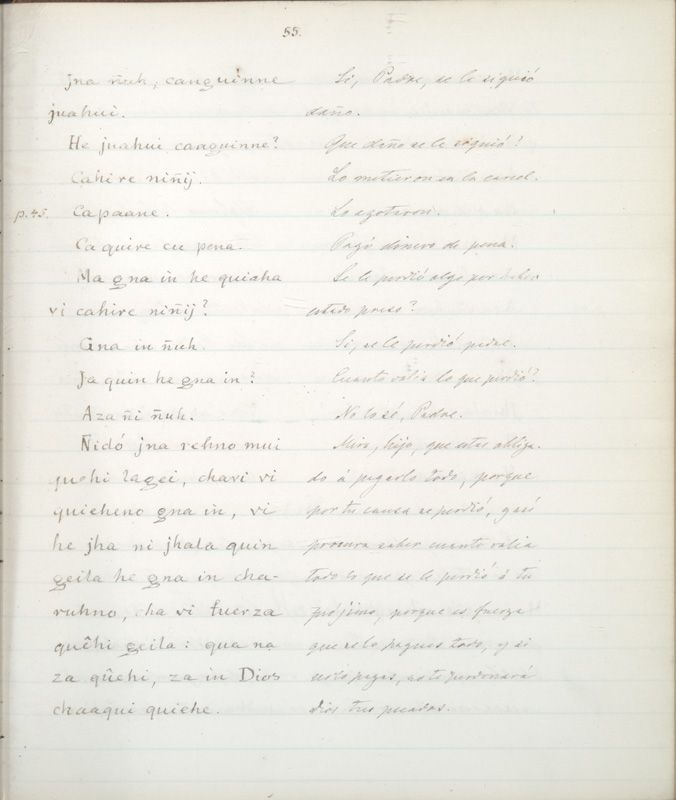 55.
jna ñuh, canguinne
juahui.
He juahui canguinne?
Cahire niñij.
p. 45. Capaane.
Ca quire cu pena.
Ma gna in he quiaha
vi cahire niñij?
Gna in ñuh.
Ja quin he gna in?
Aza ñi ñuh.
Ñidó jna rehno mui
quehi lagei, chavi vi
quieheno gna in, vi
he jha ni jhala quin
geila he gna in cha-
ruhno, cha vi fuerza
quêhi geila: qua na
za qûehi, za in Dios
chaaqui quiehe.
Si, Padre, se le siguió
daño.
Que daño se le siguió?
Lo metieron en la carcel.
Lo azotaron.
Pagó dinero de pena.
Se le perdió algo por haber
estado preso?
Si, se le perdió padre.
Cuanto valia lo que perdió?
No lo sé, Padre.
Mira, hijo, que estas obliga-
do á pagarlo todo, porque
por tu causa se perdió, y asi
procura saber cuanto valia
todo lo que se le perdió á tu
prójimo, porque es fuerza
que se lo pagues todo, y si
no lo pagas, no te perdonará
Dios tus pecados.